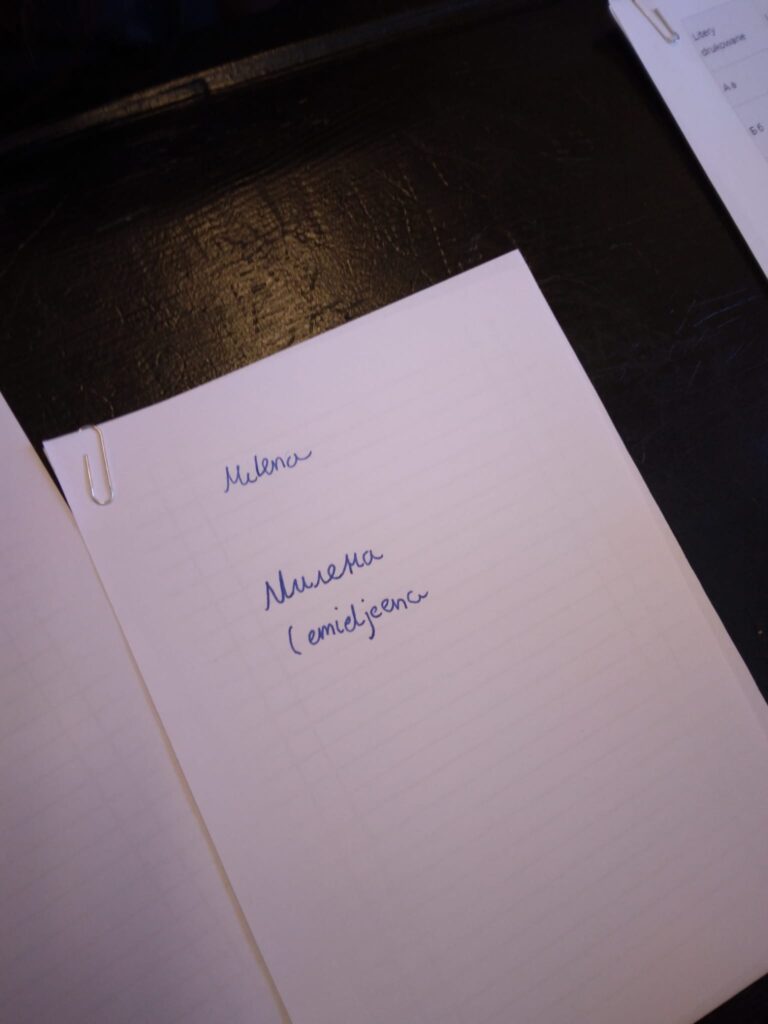 Litery
drukowane
A a
Б б
Milena
Милена
(emieljeena